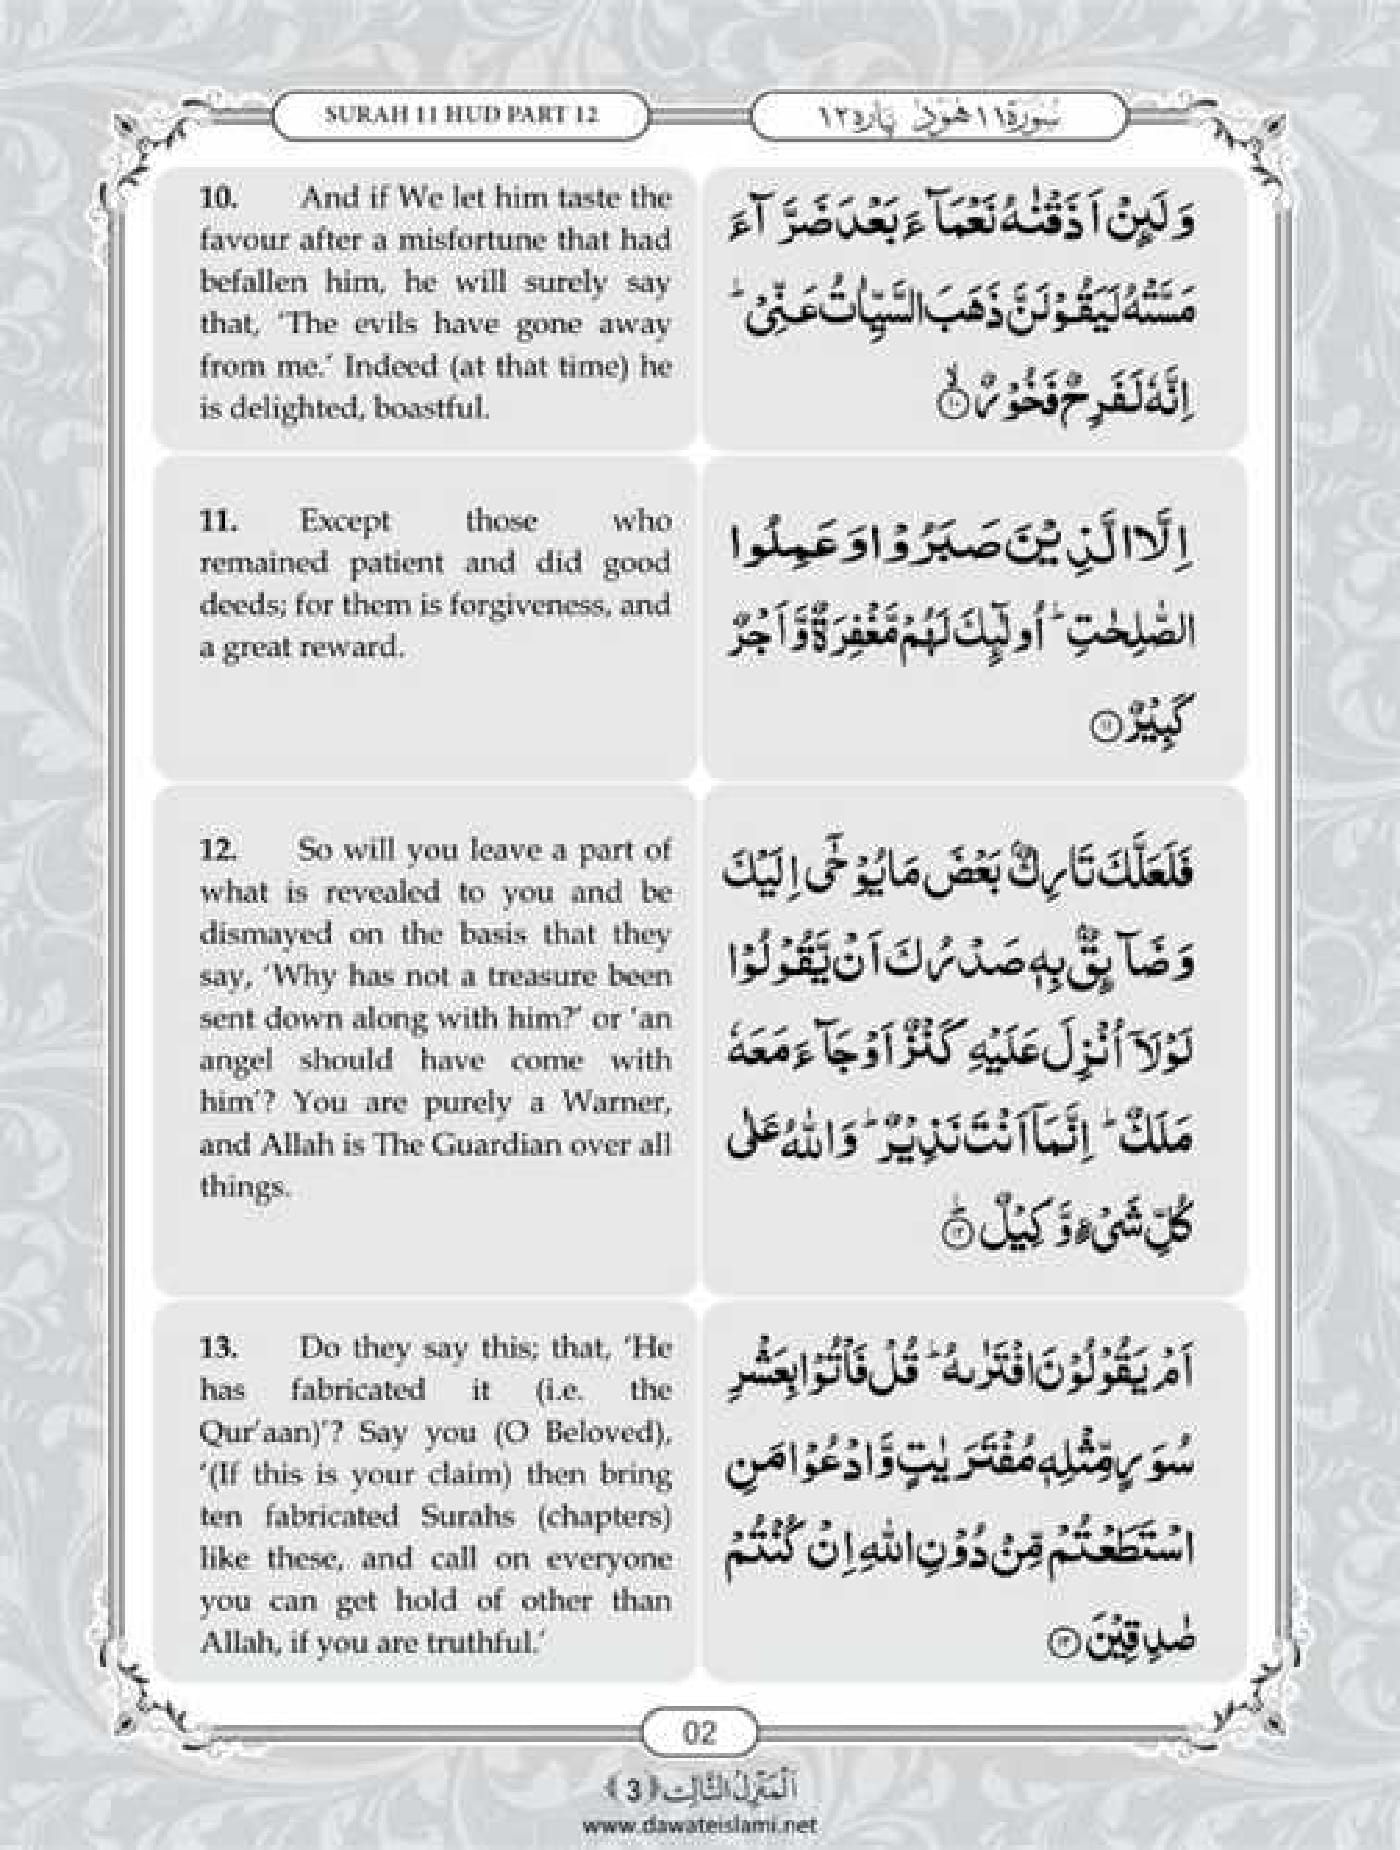 SURAH 11 HUD PART 12
سُوۡرَة ١١ هُوۡد پاره ١٢
10. And if We let him taste the
favour after a misfortune that had
befallen him, he will surely say
that, ‘The evils have gone away
from me.’ Indeed (at that time) he
is delighted, boastful.
وَلَئِنْ اَذَقْنٰهُ نَعْمَآءَ بَعْدَ ضَرَّآءَ
مَسَّتْهُ لَيَقُوْلَنَّ ذَهَبَ السَّيِّاٰتُ عَنِّیْ ؕ
اِنَّهٗ لَفَرِحٌ فَخُوْرٌ ۙ﴿۱۰﴾
11. Except those who
remained patient and did good
deeds; for them is forgiveness, and
a great reward.
اِلَّا الَّذِيْنَ صَبَرُوْا وَعَمِلُوا
الصّٰلِحٰتِ ؕ اُولٰٓئِكَ لَهُمْ مَّغْفِرَةٌ وَّاَجْرٌ
كَبِيْرٌ ﴿۱۱﴾
12. So will you leave a part of
what is revealed to you and be
dismayed on the basis that they
say, ‘Why has not a treasure been
sent down along with him?’ or ‘an
angel should have come with
him’? You are purely a Warner,
and Allah is The Guardian over all
things.
فَلَعَلَّكَ تَارِكٌۢ بَعْضَ مَا يُوْحٰۤی اِلَيْكَ
وَضَآئِقٌۢ بِهٖ صَدْرُكَ اَنْ يَّقُوْلُوْا
لَوْلَاۤ اُنْزِلَ عَلَيْهِ كَنْزٌ اَوْ جَآءَ مَعَهٗ
مَلَكٌ ؕ اِنَّمَاۤ اَنْتَ نَذِيْرٌ ؕ وَاللّٰهُ عَلٰی
كُلِّ شَیْءٍ وَّكِيْلٌ ﴿ؕ۱۲﴾
13. Do they say this; that, ‘He
has fabricated it (i.e. the
Qur’aan)’? Say you (O Beloved),
‘(If this is your claim) then bring
ten fabricated Surahs (chapters)
like these, and call on everyone
you can get hold of other than
Allah, if you are truthful.’
اَمْ يَقُوْلُوْنَ افْتَرٰىهُ ؕ قُلْ فَاْتُوْا بِعَشْرِ
سُوَرٍ مِّثْلِهٖ مُفْتَرَيٰتٍ وَّادْعُوْا مَنِ
اسْتَطَعْتُمْ مِّنْ دُوْنِ اللّٰهِ اِنْ كُنْتُمْ
صٰدِقِيْنَ ﴿۱۳﴾
02
اَلْمَنْزِلُ الثَّالِث ﴿3﴾
www.dawateislami.net